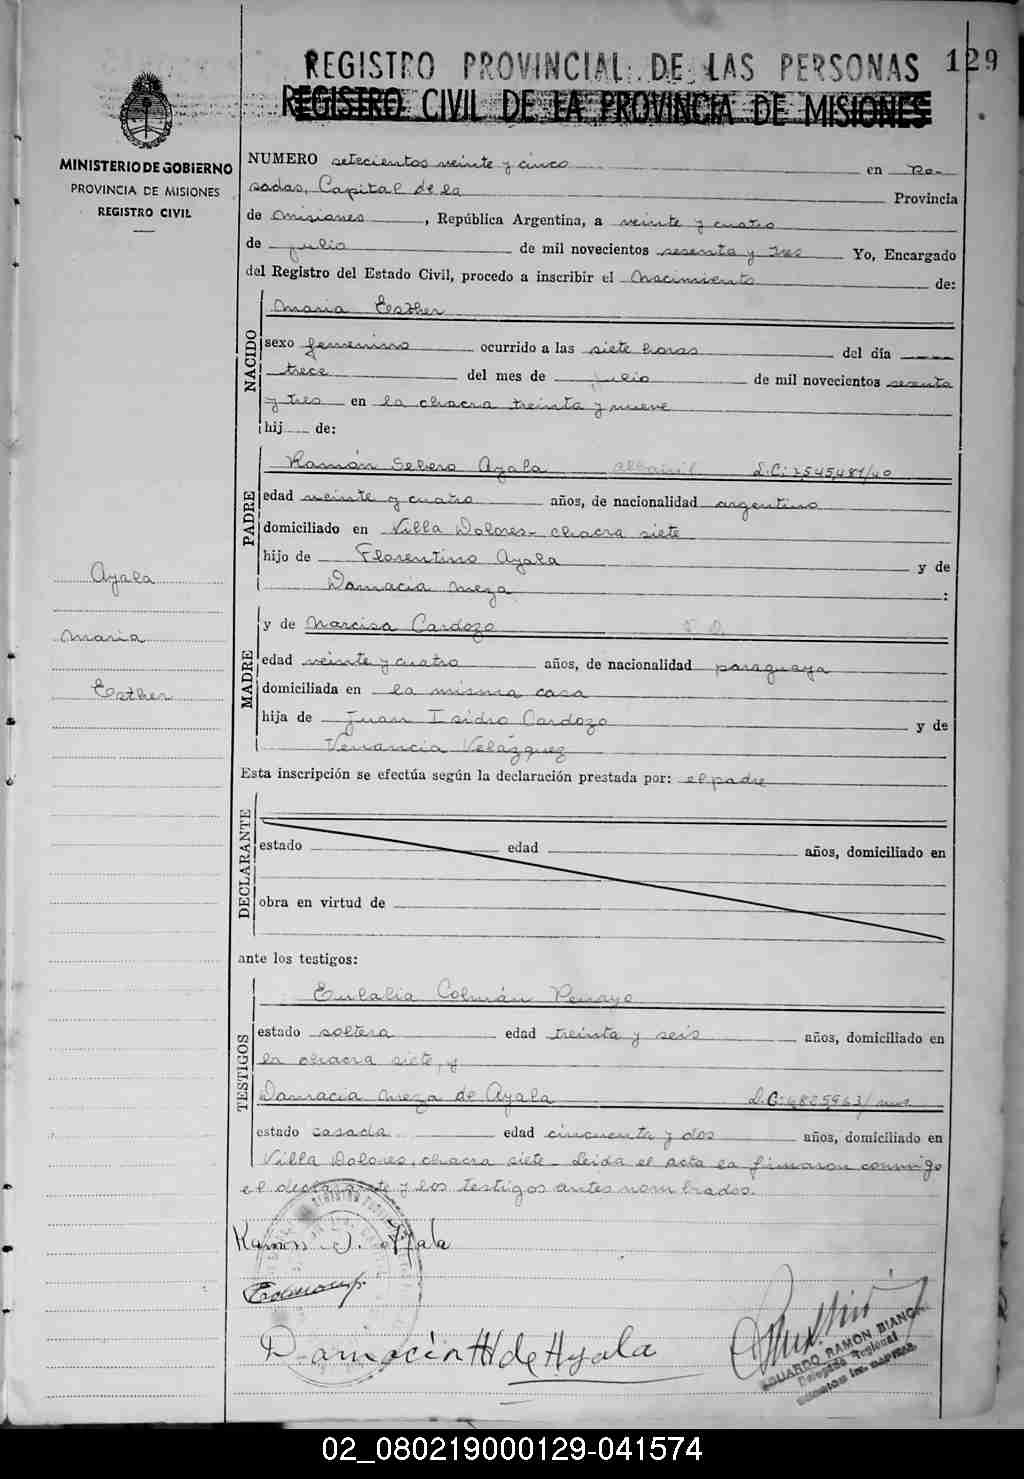 REGISTRO PROVINCIAL DE LAS PERSONAS 129
REGISTRO CIVIL DE LA PROVINCIA DE MISIONES
MINISTERIO DE GOBIERNO
PROVINCIA DE MISIONES
REGISTRO CIVIL
NUMERO setecientos veinte y cinco en Po-
sadas, Capital de la Provincia
de Misiones, República Argentina, a veinte y cuatro
de julio de mil novecientos sesenta y tres Yo, Encargado
del Registro del Estado Civil, procedo a inscribir el Nacimiento de:
NACIDO
Maria Esther
sexo femenino ocurrido a las siete horas del día
trece del mes de julio de mil novecientos sesenta
y tres en la chacra treinta y nueve
hij de:
PADRE
Ramón Sebero Ayala albañil L.C: 2,545,481/40
edad veinte y cuatro años, de nacionalidad argentino
domiciliado en Villa Dolores- chacra siete
hijo de Florentino Ayala y de
Damacia Meza :
Ayala
Maria
Esther
MADRE
y de Narcisa Cardozo
edad veinte y cuatro años, de nacionalidad paraguaya
domiciliada en la misma casa
hija de Juan Isidro Cardozo y de
Venancia Velázquez
Esta inscripción se efectúa según la declaración prestada por: el padre
DECLARANTE
estado edad años, domiciliado en
obra en virtud de
ante los testigos:
TESTIGOS
Eulalia Colmán Penayo
estado soltera edad treinta y seis años, domiciliado en
la chacra siete, y
Damacia Meza de Ayala L.C: 6825963/
estado casada edad cincuenta y dos años, domiciliado en
Villa Dolores, chacra siete- Leida el acta la firmaron conmigo
el declarante y los testigos antes nombrados.
Ramon S. Ayala
Damacia M de Ayala
EDUARDO RAMON BIANCHI
Delegado Regional
02_080219000129-041574